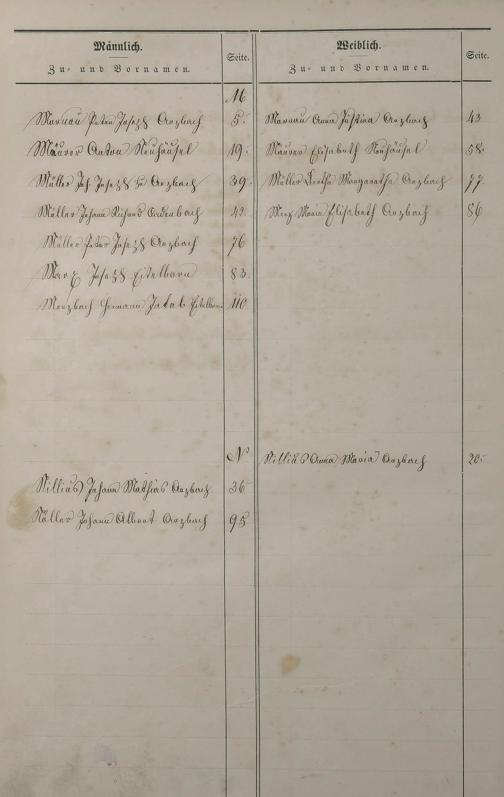 Männlich.
Zu- und Vornamen.
Seite.
Weiblich.
Zu- und Vornamen.
Seite.
M
Marnau Peter Joseph Arzbach 5.
Marnau Anna Justina Arzbach 43
Maurer Anton Neuhäusel 19.
Maurer Elisabeth Neuhäusel 58.
Müller Joh. Joseph Arzbach 39.
Müller Margaretha Arzbach 77.
Müller Johann Arzbach
Maria Elisabeth Arzbach 86
Müller Peter Joseph Arzbach 76
Marx Joseph Eitelborn 83.
Merzbach Hermann Jakob Eitelborn 110
N
Nillius Anna Maria Arzbach 20.
Nillius Johann Mathias Arzbach 36
Nöller Johann Albert Arzbach 95